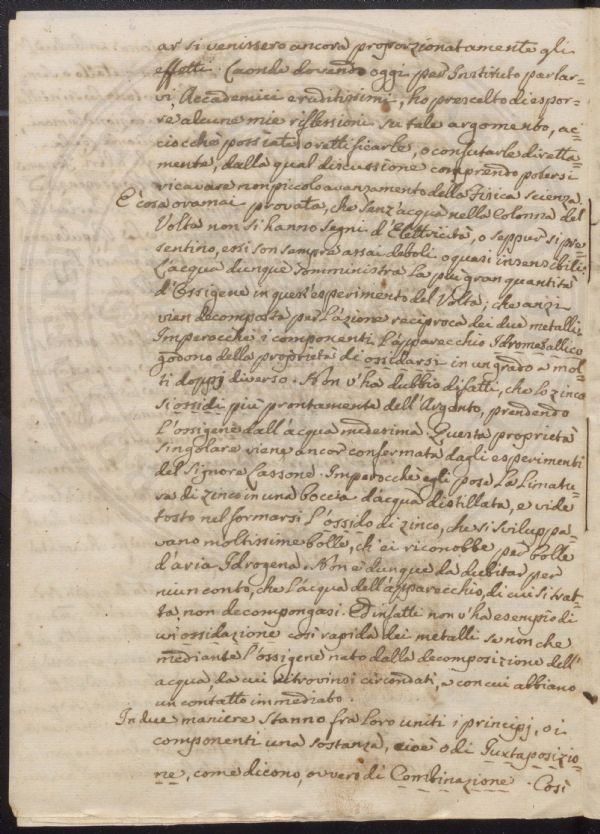 ar si venissero ancora proporzionatamente gli
effetti. Laonde dovendo oggi per Instituto parlar-
vi, Accademici eruditissimi, ho prescelto di espor-
re alcune mie riflessioni su tale argomento, ac-
ciocchè possiate, o rettificarle, o confutarle diretta-
mente, dalla qual discussione comprendo potersi
ricavare non piccolo avanzamento della Fisica scienza.
E' cosa oramai provata, che senz'acqua nella Colonna del
Volta non si hanno segni d'Elettricità, o seppur si pre-
sentino, così son sempre assai deboli o quasi insensibili.
L'acqua dunque somministra la più gran quantità
d'Ossigene in quest'esperimento del Volta; che anzi
vien decomposta per l'azione reciproca dei due metalli.
Imperocchè i componenti l'apparecchio Idrometallico
godono della proprietà di ossidarsi in un grado a mol-
ti doppj diverso. Non v'ha dubbio difatti, che lo zinco
si ossidi più prontamente dell'Arganto, prendendo
l'ossigene dall'acqua medesima. Questa proprietà
singolare viene ancor confermata dagli esperimenti
del Signore Lassone. Imperocchè egli pose la limatu-
ra di zinco in una boccia d'acqua distillata, e vide
tosto nel formarsi l'ossido di zinco, che si sviluppa-
vano moltissime bolle, ch'ei riconobbe per bolle
d'aria Idrogena. Non è dunque da dubitar per
niun conto, che l'acqua dell'apparecchio, di cui si trat-
ta, non decompongasi. Ed infatti non v'ha esempio di
un'ossidazione così rapida dei metalli se non che
mediante l'ossigene nato dalla decomposizione dell'
acqua, da cui ritrovinsi circondati, e con cui abbiano
un contatto immediato.
In due maniere stanno fra loro uniti i principj, o i
componenti una sostanza, cioè o di Juxtaposizio-
ne, come dicono, ovvero di Combinazione. Così